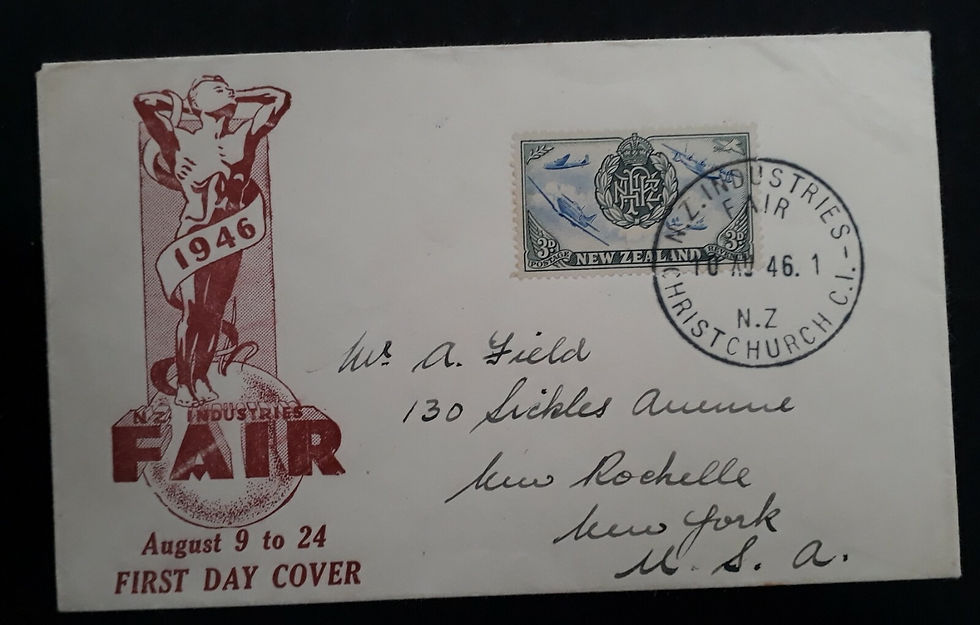 1946
N.Z. INDUSTRIES
FAIR
August 9 to 24
FIRST DAY COVER
3D 3D
POSTAGE NEW ZEALAND REVENUE
N.Z. INDUSTRIES-
FAIR
10 AU 46. 1
N.Z
CHRISTCHURCH C.I.-
Mr. A. Field
130 Sickles Avenue
New Rochelle
New York
U. S. A.